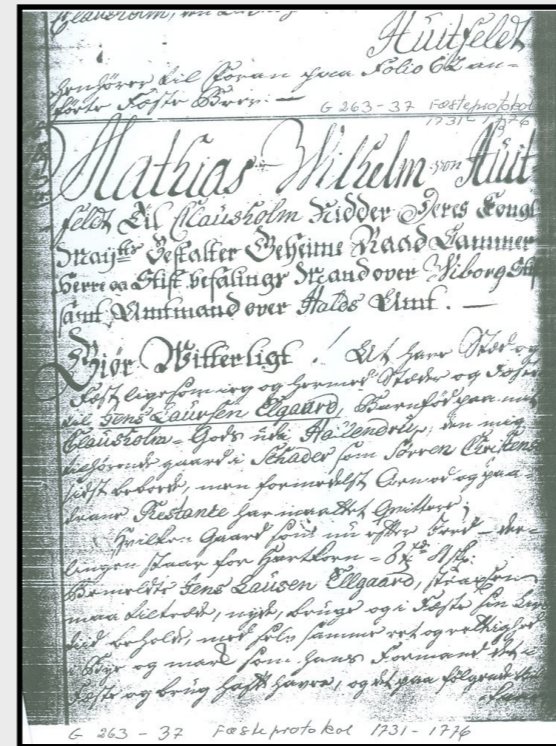 Clausholm, den
Huitfeldt
henhører til foran paa Folio 62 an-
førte Fæste Brev: —
G 263-37 Fæsteprotokol
1731-1776
Mathias Wilhelm von Huit
feldt Til Clausholm Ridder Deres Kongl
Mayts Bestalter Geheime Raad Cammer
herre og Stift befalings Mand over Wiborg Stift
samt Amtmand over Halds Amt. —
Giør Witterligt! At have Stæd og
Fæst ligesom ieg og hermed Stæder og Fæster
til Jens Laursen Elgaard, Barnfød paa mit
Clausholm-Gods udi den mig
tilhørende gaard i Schader som Sørren Christens
sidst beboede, men formedelst Armod og paa-
Restante har maattet Qvittere;
Hvilken Gaard som nu efter
lingen staar for Hartkorn
Bemeldte Jens Lausen Ellgaard,
maa tiltræde, nyde, bruge og i Fæste sin Livs
tiid beholde, med samme ret og rettighed
og mark som hans Formand det i
Fæste og brug haft havver, og det paa følgende
G 263-37 Fæsteprotokol 1731-1776